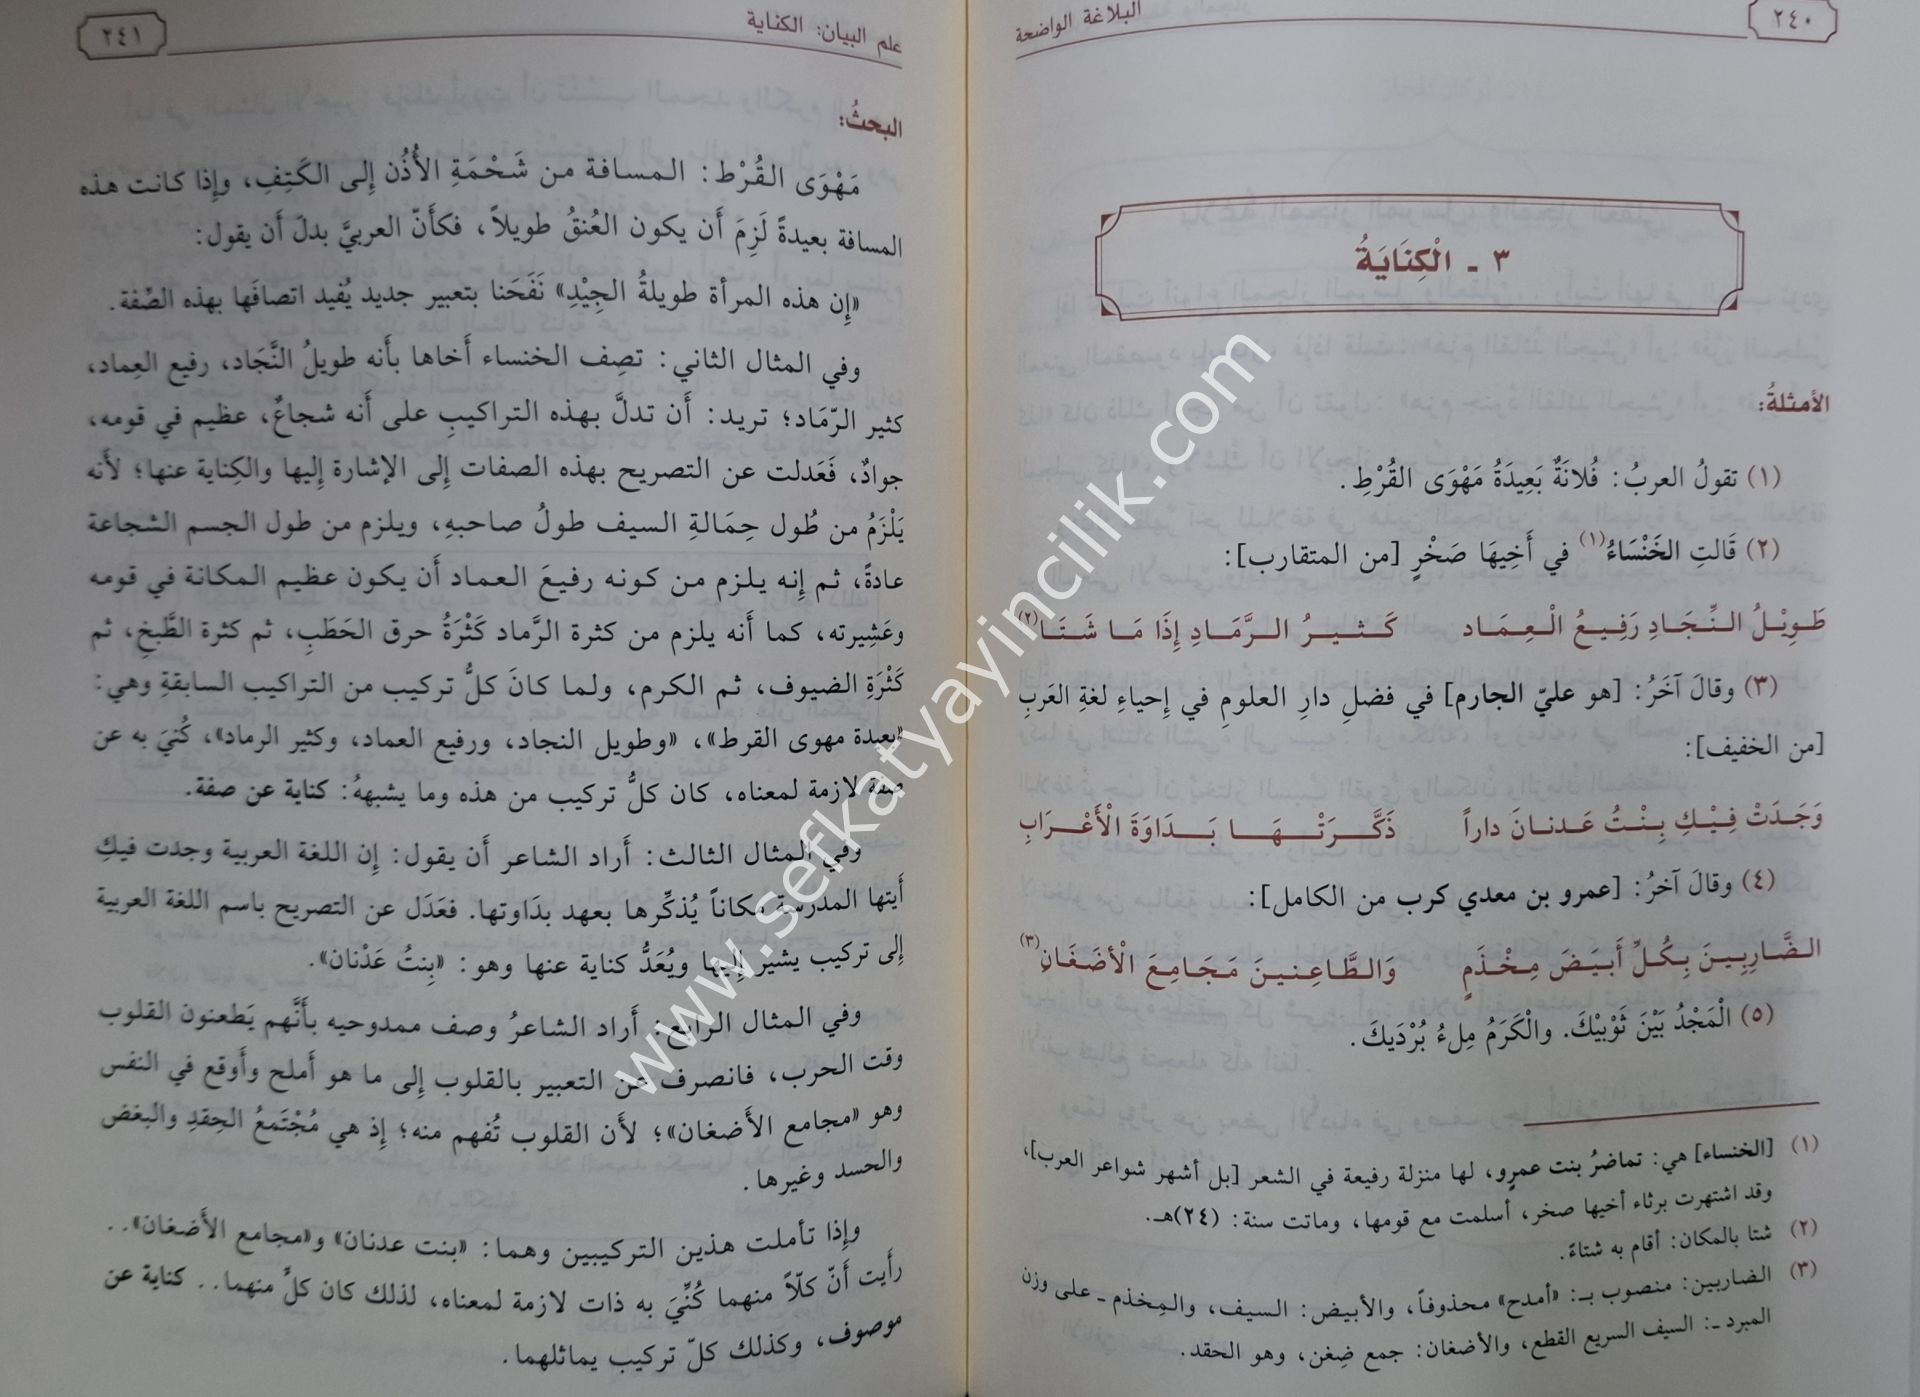 ٢٤٠
البلاغة الواضحة
٣ ـ الْكِنَايَةُ
الأمثلةُ:
(١) تقولُ العربُ: فُلانَةٌ بَعِيدَةُ مَهْوَى القُرْطِ.
(٢) قَالتِ الخَنْسَاءُ(١) في أَخِيهَا صَخْرٍ [من المتقارب]:
طَوِيْلُ النِّجَادِ رَفِيعُ الْعِمَاد كَثيرُ الرَّمَادِ إِذَا مَا شَتَا(٢)
(٣) وقالَ آخَرُ: [هو عليّ الجارم] في فضلِ دارِ العلومِ في إِحياءِ لغةِ العَربِ
[من الخفيف]:
وَجَدَتْ فِيْكِ بِنْتُ عَدنانَ داراً ذَكَّرَتْهَا بَدَاوَةَ الْأَعْرَابِ
(٤) وقالَ آخرُ: [عمرو بن معدي كرب من الكامل]:
الضَّارِبِينَ بِكُلِّ أَبيَضَ مِخْذَمٍ وَالطَّاعِنينَ مَجَامِعَ الْأضَغَانِ(٣)
(٥) الْمَجْدُ بَيْنَ ثَوْبيْكَ. والْكَرَمُ مِلءُ بُرْدَيكَ.
(١) [الخنساء] هي: تماضرُ بنت عمرٍو، لها منزلة رفيعة في الشعر [بل أشهر شواعر العرب]،
وقد اشتهرت برثاء أخيها صخر، أسلمت مع قومها، وماتت سنة: (٢٤)هـ.
(٢) شتا بالمكان: أقام به شتاءً.
(٣) الضاربين: منصوب بـ: «أمدح» محذوفاً، والأبيض: السيف، والمِخذم ـ على وزن
المبرد ـ: السيف السريع القطع، والأضغان: جمع ضِغن، وهو الحقد.
علم البيان: الكناية
٢٤١
البحثُ:
مَهْوَى القُرْط: المسافة من شَحْمَةِ الأُذُن إِلى الكَتِفِ، وإِذا كانت هذه
المسافة بعيدةً لَزِمَ أَن يكون العُنقُ طويلاً، فكأَنّ العربيَّ بدلَ أَن يقول:
«إِن هذه المرأة طويلةُ الجِيْدِ» نَفَحَنا بتعبير جديد يُفيد اتصافَها بهذه الصِّفة.
وفي المثال الثاني: تصِف الخنساء أَخاها بأَنه طويلُ النَّجَاد، رفيع العِماد،
كثير الرّمَاد؛ تريد: أَن تدلَّ بهذه التراكيبِ على أَنه شجاعٌ، عظيم في قومه،
جوادٌ، فَعَدلت عن التصريح بهذه الصفات إِلى الإشارة إِليها والكِناية عنها؛ لأَنه
يَلْزَمُ من طُول حِمَالةِ السيف طولُ صاحبهِ، ويلزم من طول الجسم الشجاعة
عادةً، ثم إِنه يلزم من كونه رفيعَ العماد أَن يكون عظيم المكانة في قومه
وعَشِيرته، كما أَنه يلزم من كثرة الرَّماد كَثْرَةُ حرق الحَطَبِ، ثم كثرة الطَّبخِ، ثم
كَثْرَةِ الضيوف، ثم الكرم، ولما كانَ كلُّ تركيب من التراكيب السابقةِ وهي:
«بعيدة مهوى القرط»، «وطويل النجاد، ورفيع العماد، وكثير الرماد»، كُنيَ به عن
صفة لازمة لمعناه، كان كلُّ تركيب من هذه وما يشبههُ: كناية عن صفة.
وفي المثال الثالث: أَراد الشاعر أَن يقول: إِن اللغة العربية وجدت فيكِ
أَيتها المدرسة مكاناً يُذكِّرها بعهد بدَاوتها. فعَدَل عن التصريح باسم اللغة العربية
إِلى تركيب يشير إِليها ويُعَدُّ كناية عنها وهو: «بِنتُ عَدْنان».
وفي المثال الرابع: أَراد الشاعرُ وصف ممدوحيه بأَنَّهم يَطعنون القلوب
وقت الحرب، فانصرف عن التعبير بالقلوب إِلى ما هو أَملح وأَوقع في النفس
وهو «مجامع الأَضغان»؛ لأَن القلوب تُفهم منه؛ إِذ هي مُجْتَمعُ الحِقدِ والبغض
والحسد وغيرها.
وإِذا تأملت هذين التركيبين وهما: «بنت عدنان» و«مجامع الأَضغان»..
رأَيت أَنّ كلّاً منهما كُنِّيَ به ذات لازمة لمعناه، لذلك كان كلٌّ منهما.. كناية عن
موصوف، وكذلك كلّ تركيب يماثلهما.
www.sefkatyayincilik.com